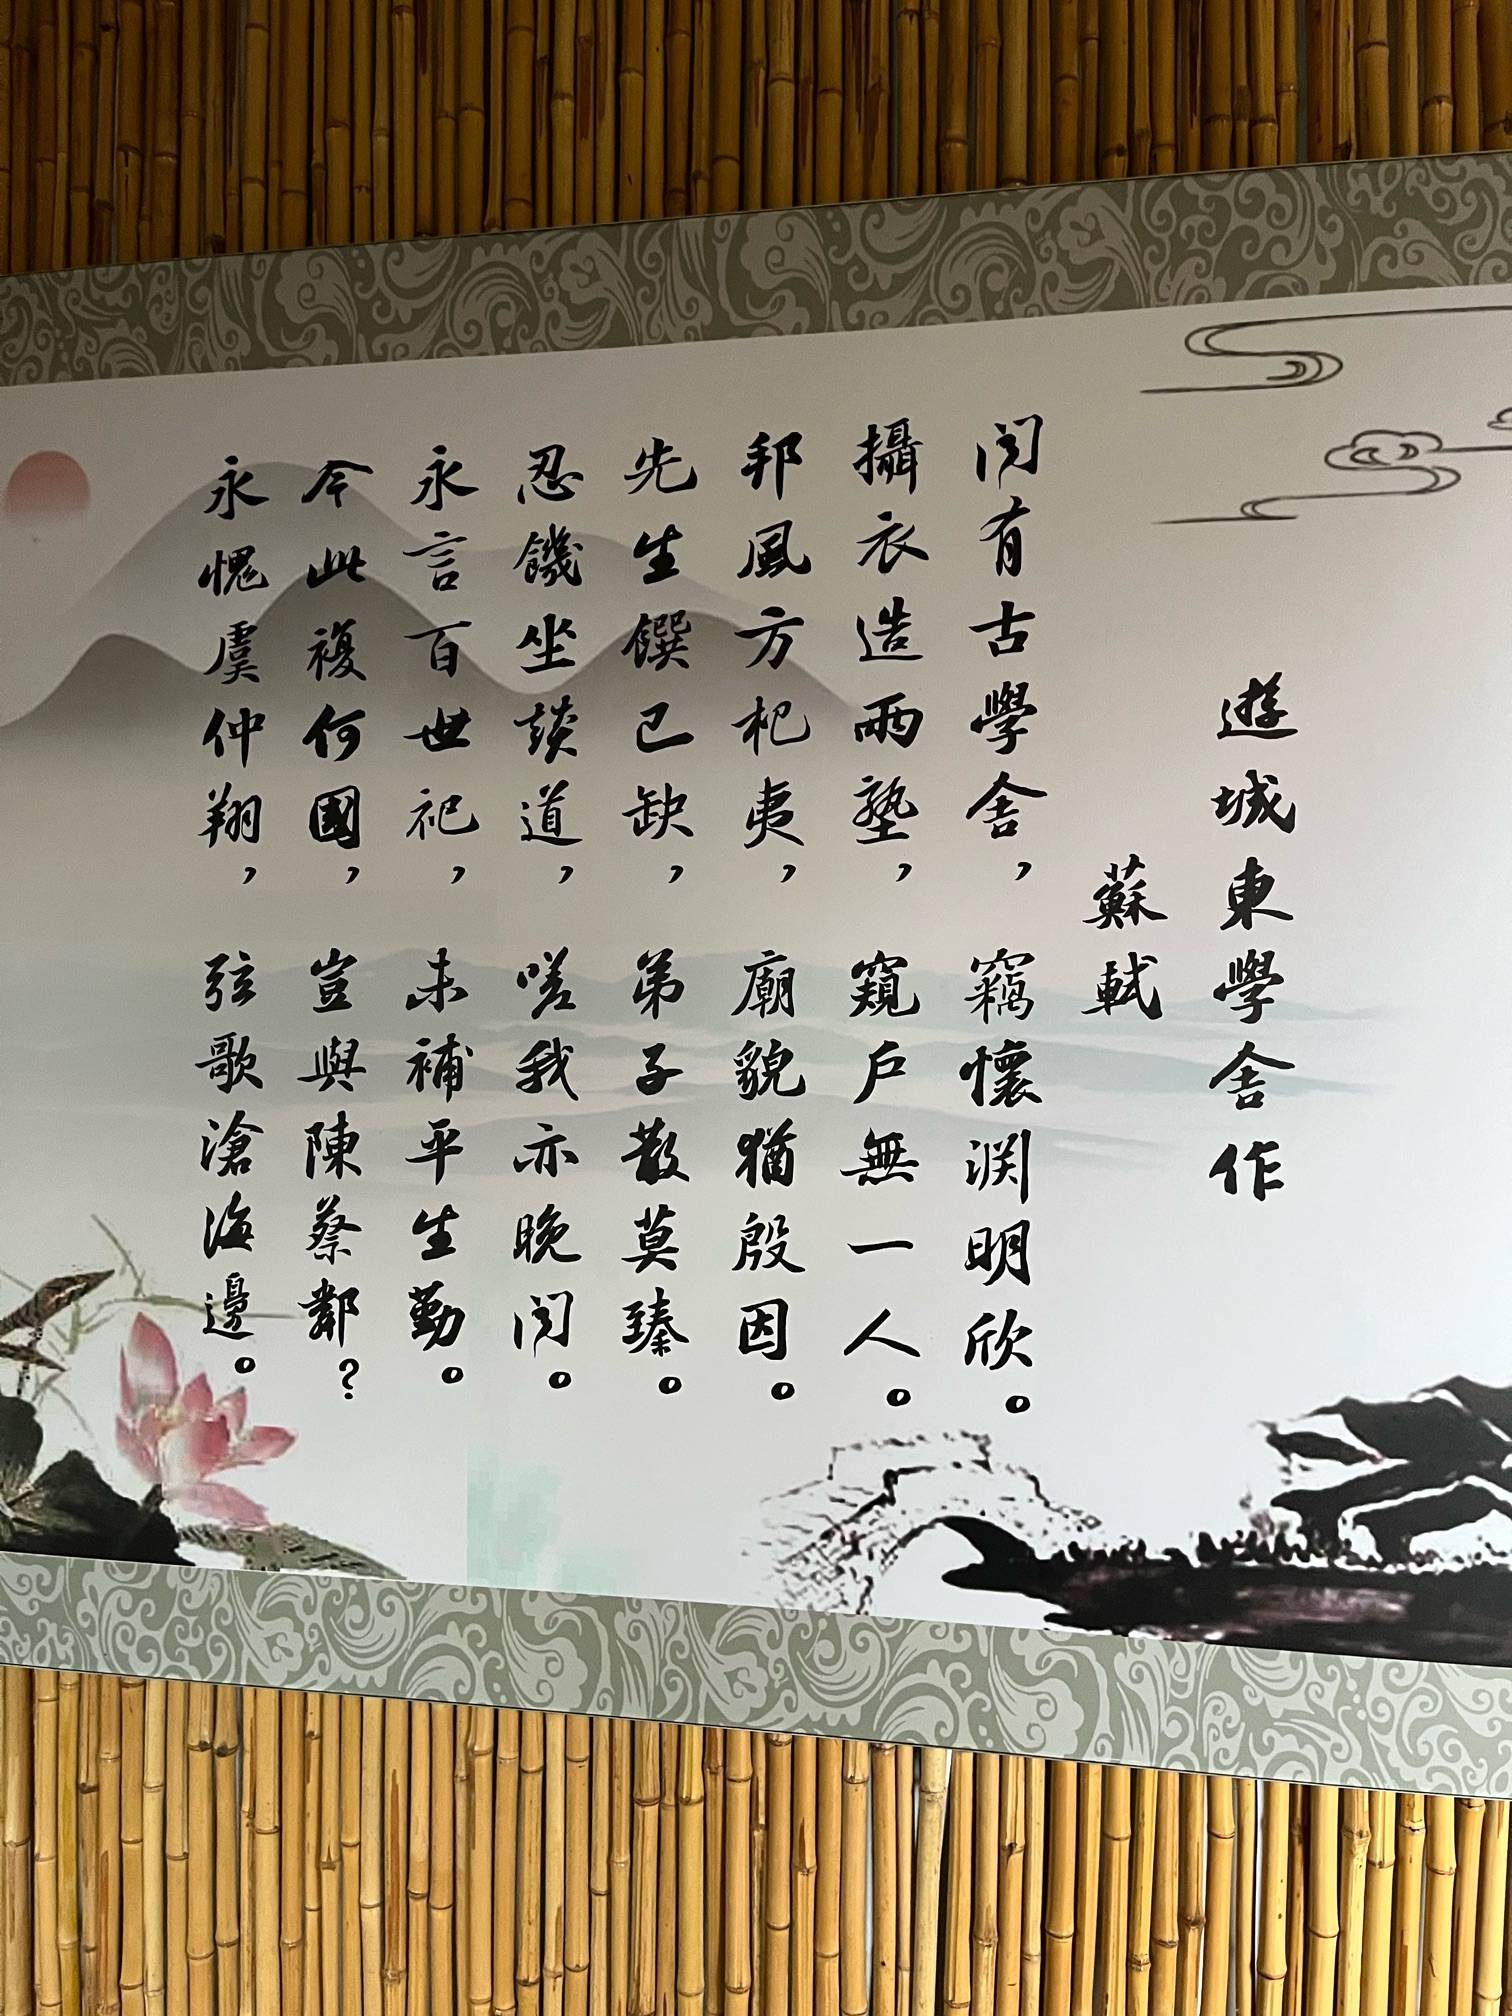 遊城東學舍作
蘇軾
闻有古學舍，竊懷渊明欣。
攝衣造兩塾，窺戶無一人。
邦風方杞夷，廟貌猶殷因。
先生饌已缺，弟子散莫臻。
忍饑坐談道，嗟我亦晚闻。
永言百世祀，未補平生勤。
今此複何國，豈與陳蔡鄰？
永愧虞仲翔，弦歌滄海邊。